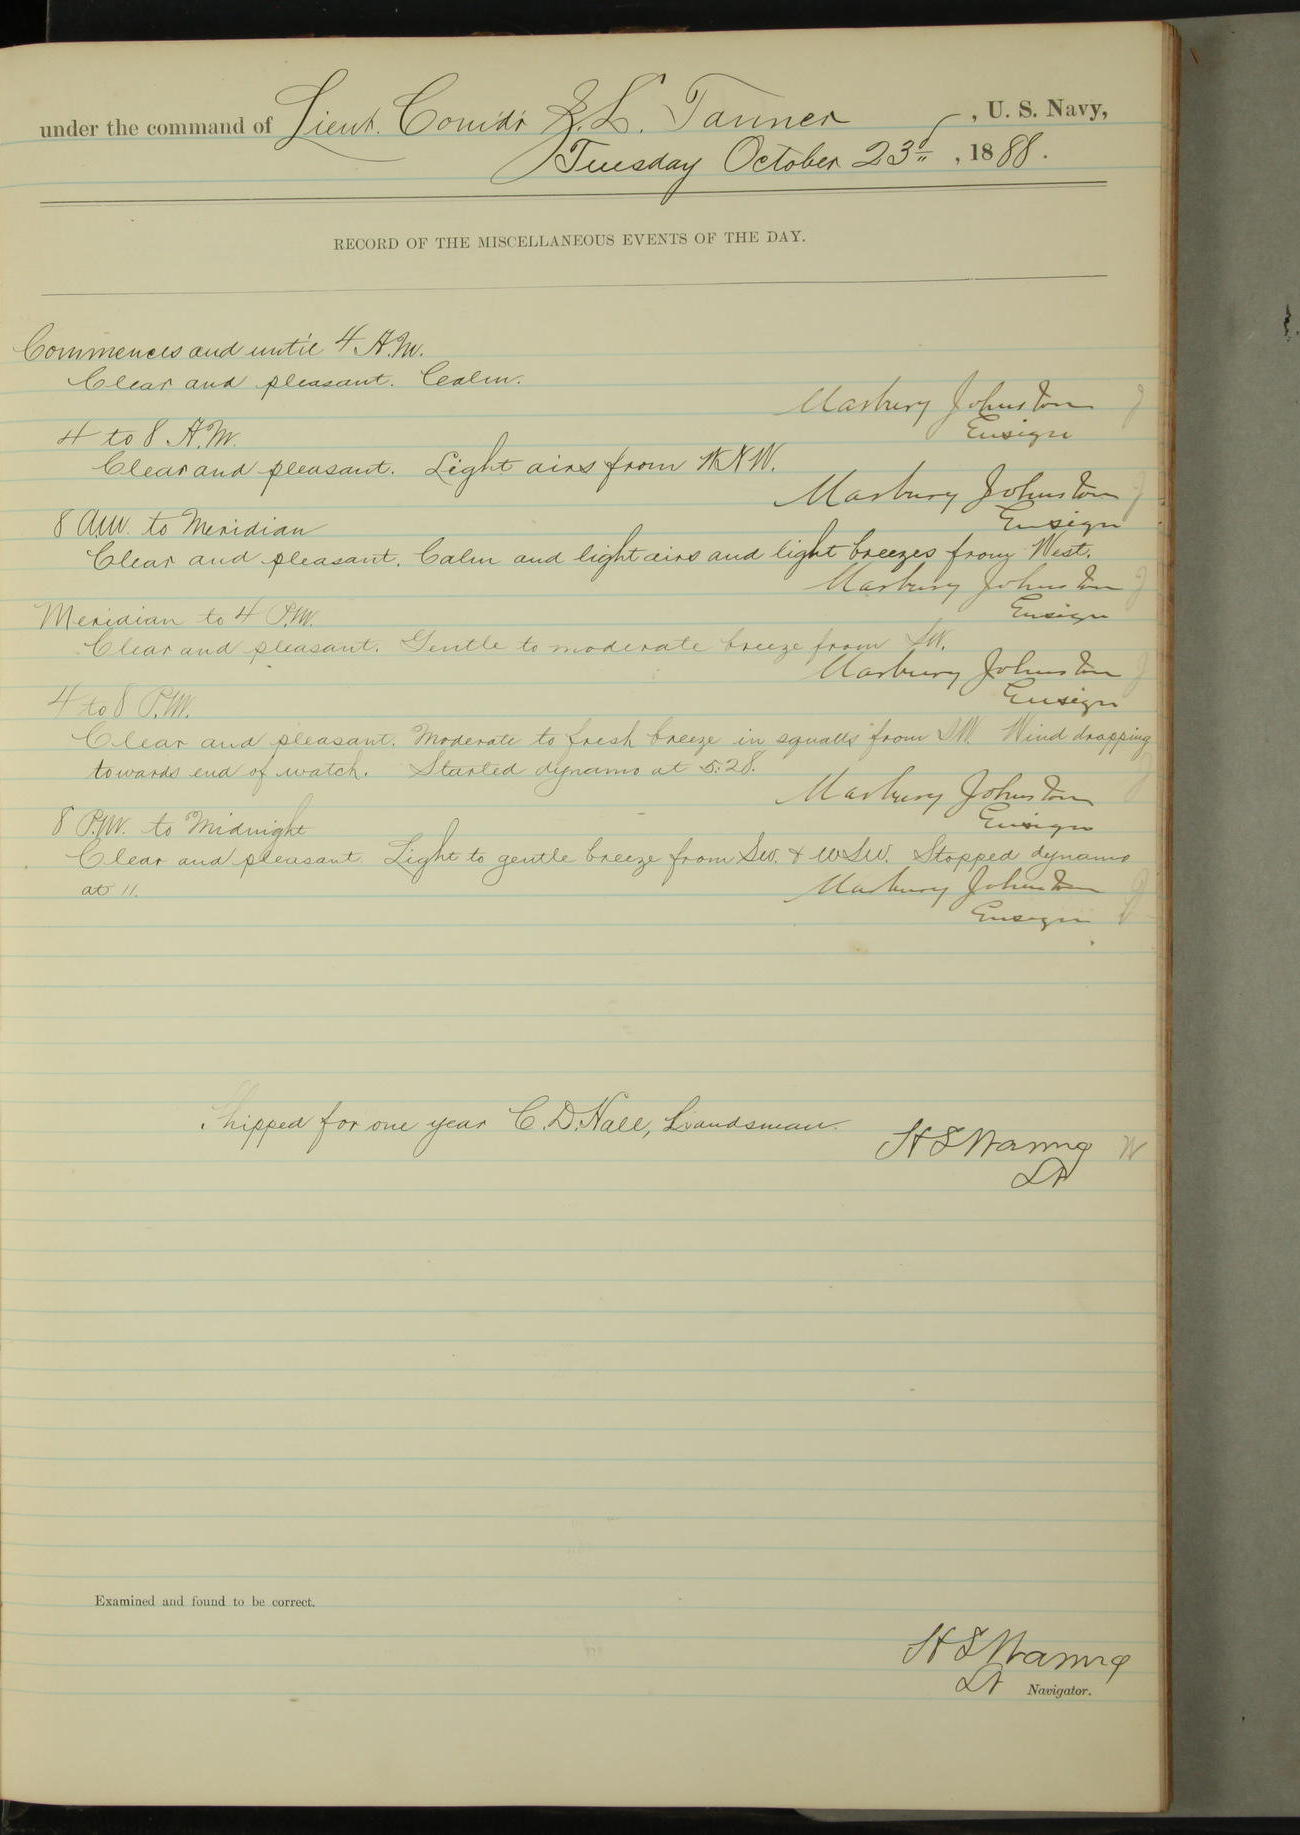 under the command of Lieut. Comdr Z. L. Tanner, U. S. Navy,
Tuesday October 23d, 1888.
RECORD OF THE MISCELLANEOUS EVENTS OF THE DAY.
Commences and until 4 A.M.
Clear and pleasant. Calm.
Marbury Johnston J
Ensign
4 to 8 A.M.
Clear and pleasant. Light airs from WNW.
Marbury Johnston J
Ensign
8 A.M. to Meridian
Clear and pleasant. Calm and light airs and light breezes from West.
Marbury Johnston J
Ensign
Meridian to 4 P.M.
Clear and pleasant. Gentle to moderate breeze from SW.
Marbury Johnston J
Ensign
4 to 8 P.M.
Clear and pleasant. Moderate to fresh breeze in squalls from SW. Wind dropping
towards end of watch. Started dynamo at 5:28.
Marbury Johnston J
Ensign
8 P.M. to Midnight
Clear and pleasant Light to gentle breeze from SW. & WSW. Stopped dynamo
at 11.
Marbury Johnston J
Ensign
Shipped for one year C. D. Hall, Landsman.
H S Waring W
Lt
Examined and found to be correct.
H S Waring
Lt Navigator.